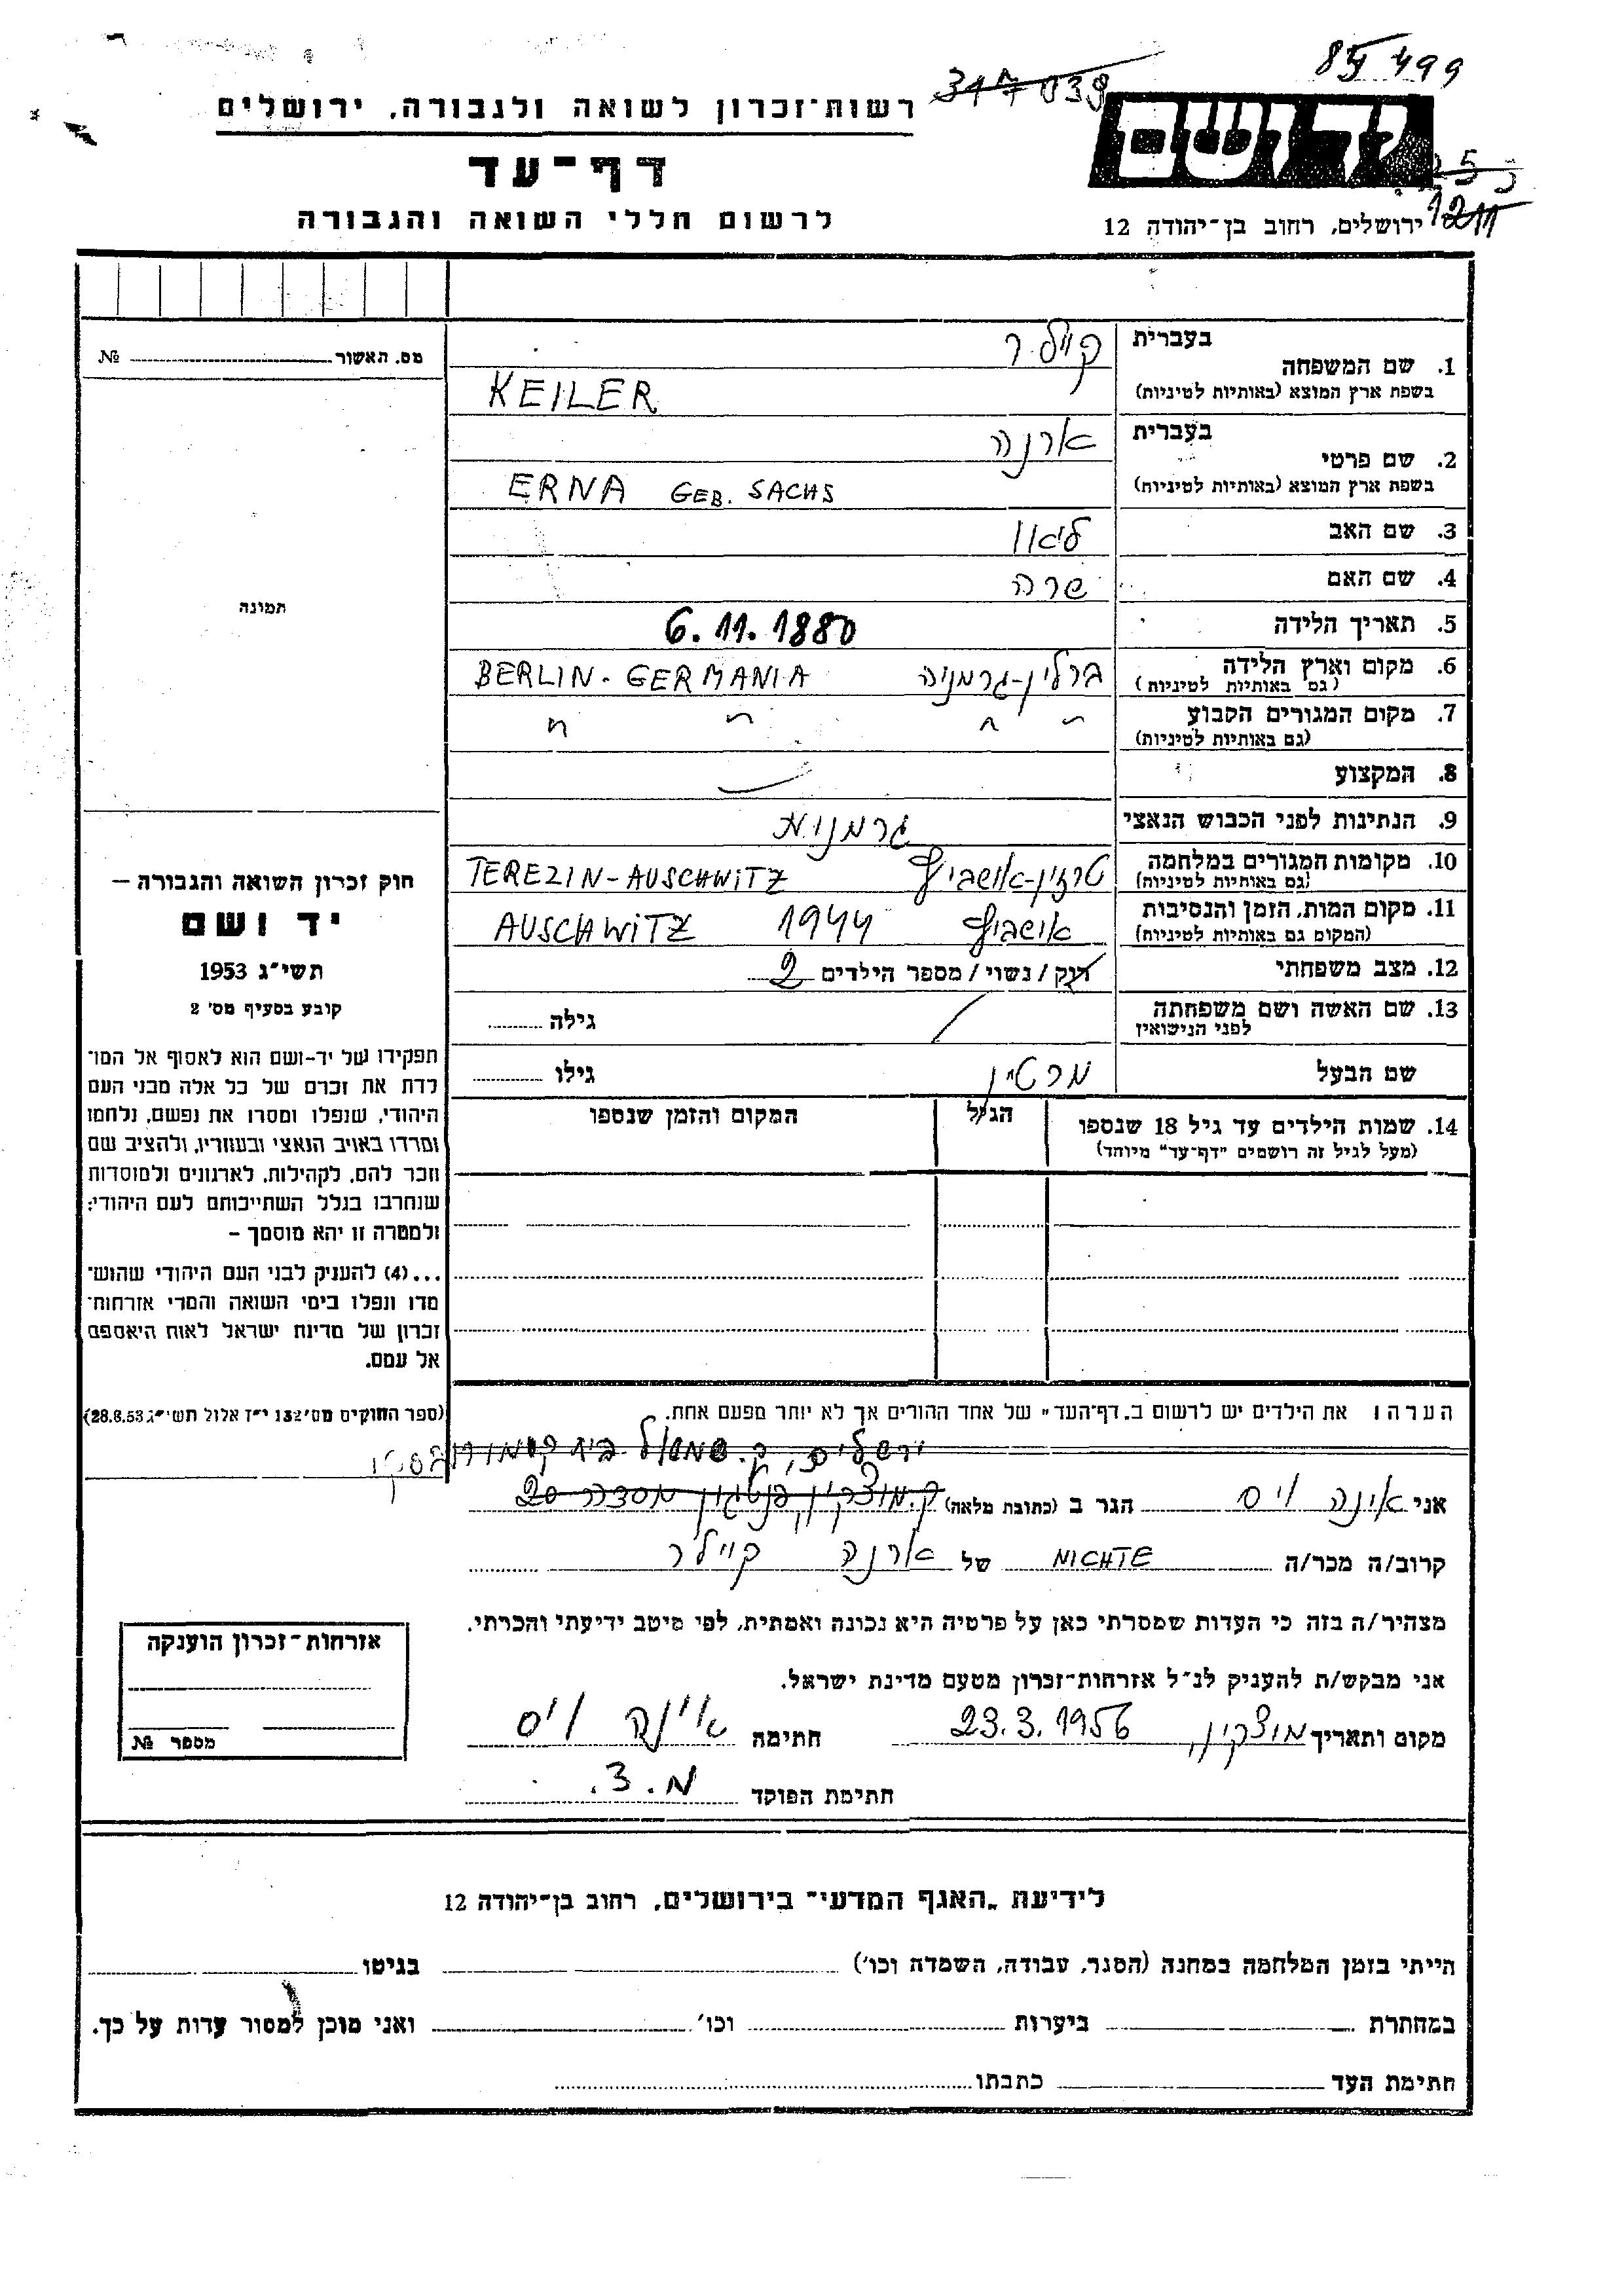 85 499
347 039
רשות־זכרון לשואה ולגבורה, ירושלים
יד ושם
דף־עד
לרשום חללי השואה והגבורה
ירושלים, רחוב בן־יהודה 12
1211
מס. האשור № 
בעברית
קיילר
1. שם המשפחה
בשפת ארץ המוצא (באותיות לטיניות)
KEILER
בעברית
ארנה
2. שם פרטי
בשפת ארץ המוצא (באותיות לטיניות)
ERNA GEB. SACHS
3. שם האב
ליאון
4. שם האם
שרה
תמונה
5. תאריך הלידה
6.11.1880
6. מקום וארץ הלידה
(גם באותיות לטיניות)
ברלין-גרמניה BERLIN-GERMANIA
7. מקום המגורים הקבוע
(גם באותיות לטיניות)
8. המקצוע
9. הנתינות לפני הכבוש הנאצי
גרמנית
10. מקומות המגורים במלחמה
(גם באותיות לטיניות)
טרזין-אושביץ TEREZIN-AUSCHWITZ
11. מקום המות, הזמן והנסיבות
(המקום גם באותיות לטיניות)
אושביץ 1944 AUSCHWITZ
12. מצב משפחתי
רוק/נשוי/מספר הילדים 2
13. שם האשה ושם משפחתה
לפני הנישואין
גילה
שם הבעל
מרטין
גילו
14. שמות הילדים עד גיל 18 שנספו
(מעל לגיל זה רושמים "דף־עד" מיוחד)
הגיל
המקום והזמן שנספו
חוק זכרון השואה והגבורה –
יד ושם
תשי"ג 1953
קובע בסעיף מס' 2
תפקידו של יד-ושם הוא לאסוף אל המו־
לדת את זכרם של כל אלה מבני העם
היהודי, שנפלו ומסרו את נפשם, נלחמו
ומרדו באויב הנאצי ובעוזריו, ולהציב שם
וזכר להם, לקהילות, לארגונים ולמוסדות
שנחרבו בגלל השתייכותם לעם היהודי;
ולמטרה זו יהא מוסמך –
...(4) להעניק לבני העם היהודי שהוש־
מדו ונפלו בימי השואה והמרי אזרחות־
זכרון של מדינת ישראל לאות היאספם
אל עמם.
(ספר החוקים מס' 132 י"ז אלול תשי"ג 28.8.53)
הערה: את הילדים יש לרשום ב„דף־העד" של אחד ההורים אך לא יותר מפעם אחת.
ירושלים, ק. שמואל בית
אני אינה ויס הגר ב (כתובת מלאה) ק. מוצקין
קרוב/ה מכר/ה NICHTE של ארנה קיילר
מצהיר/ה בזה כי העדות שמסרתי כאן על פרטיה היא נכונה ואמתית, לפי מיטב ידיעתי והכרתי.
אני מבקש/ת להעניק לנ"ל אזרחות־זכרון מטעם מדינת ישראל.
מקום ותאריך מוצקין, 23.3.1956 חתימה אינה ויס
חתימת הפוקד מ.3.
אזרחות־זכרון הוענקה
מספר №
לידיעת „האגף המדעי" בירושלים, רחוב בן־יהודה 12
הייתי בזמן המלחמה במחנה (הסגר, עבודה, השמדה וכו') בגיטו
במחתרת ביערות וכו' ואני מוכן למסור עדות על כך.
חתימת העד כתבתו